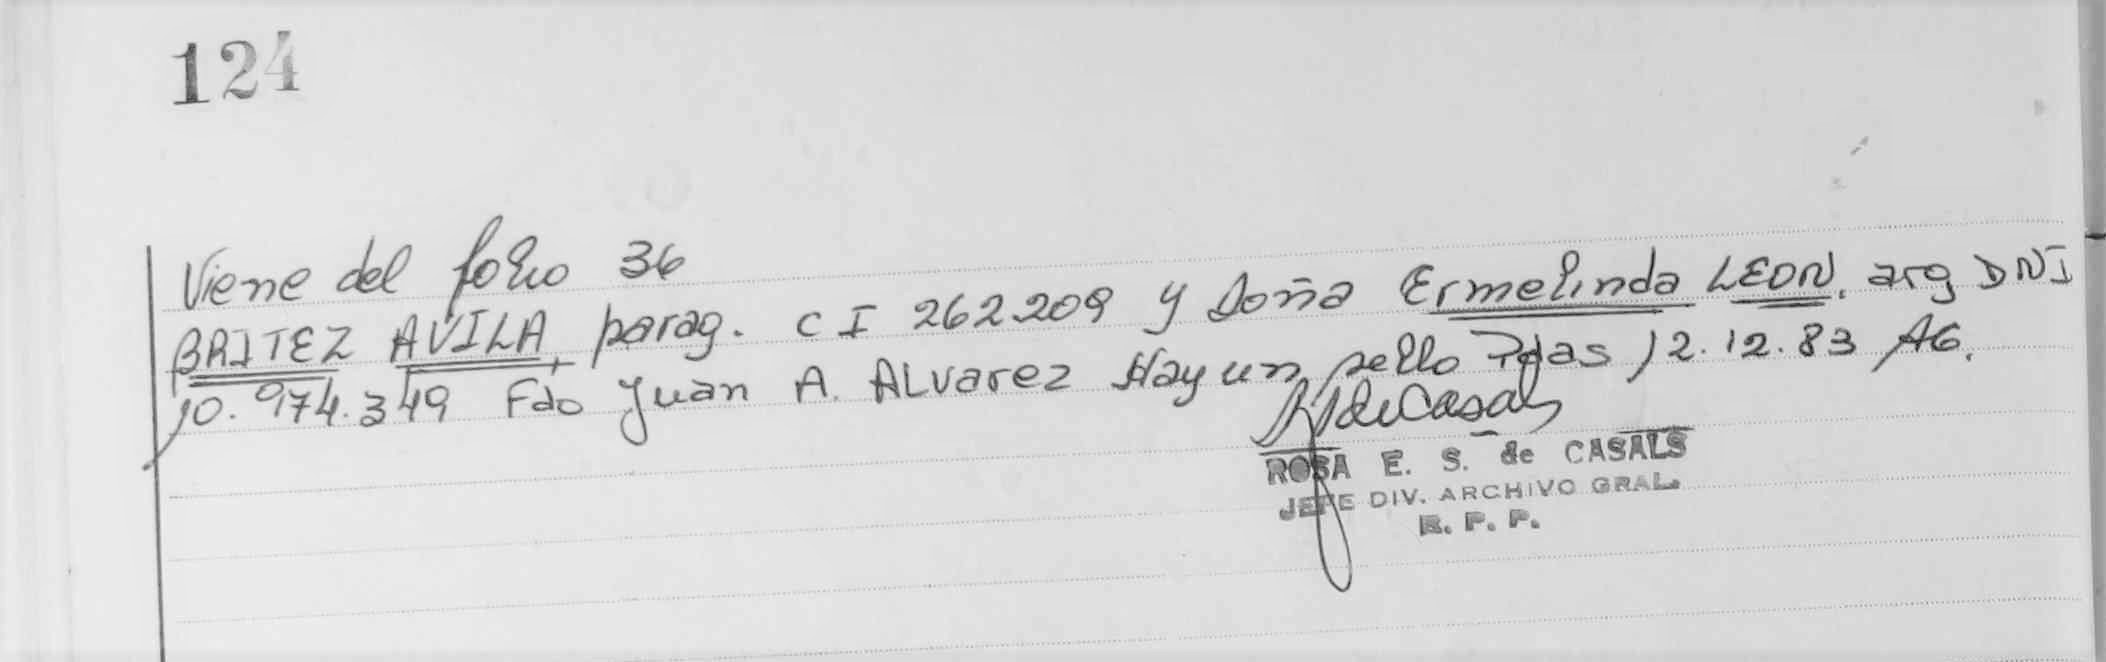 124
Viene del folio 36
BRITEZ AVILA, parag. C I 262209 y Doña Ermelinda LEON. arg DNI
10.974.349 Fdo Juan A. ALvarez Hay un sello Pdas 12.12.83 AG.
de Casals
ROSA E. S. de CASALS
JEFE DIV. ARCHIVO GRAL.
R. P. P.